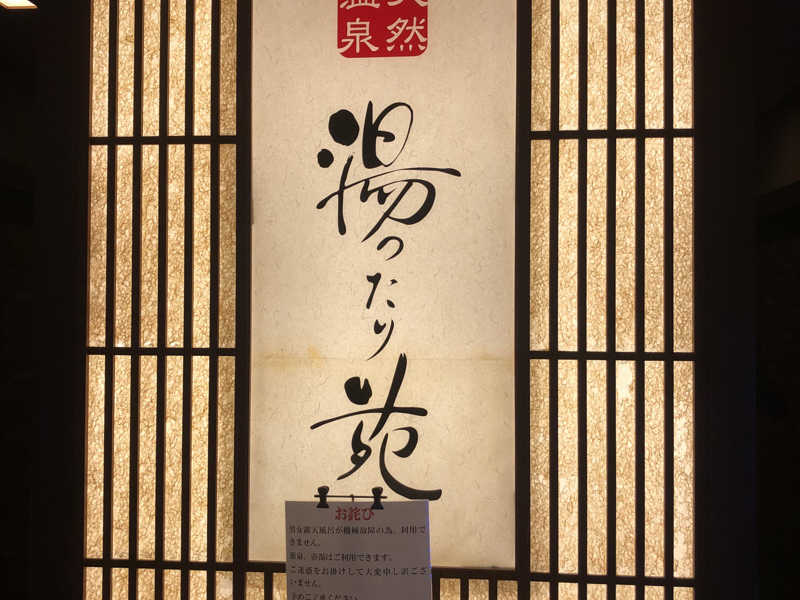 天然
温泉
湯ったり苑
お詫び
男女露天風呂が機械故障の為、利用で
きません。
ご迷惑をお掛けして大変申し訳ござ
いません。